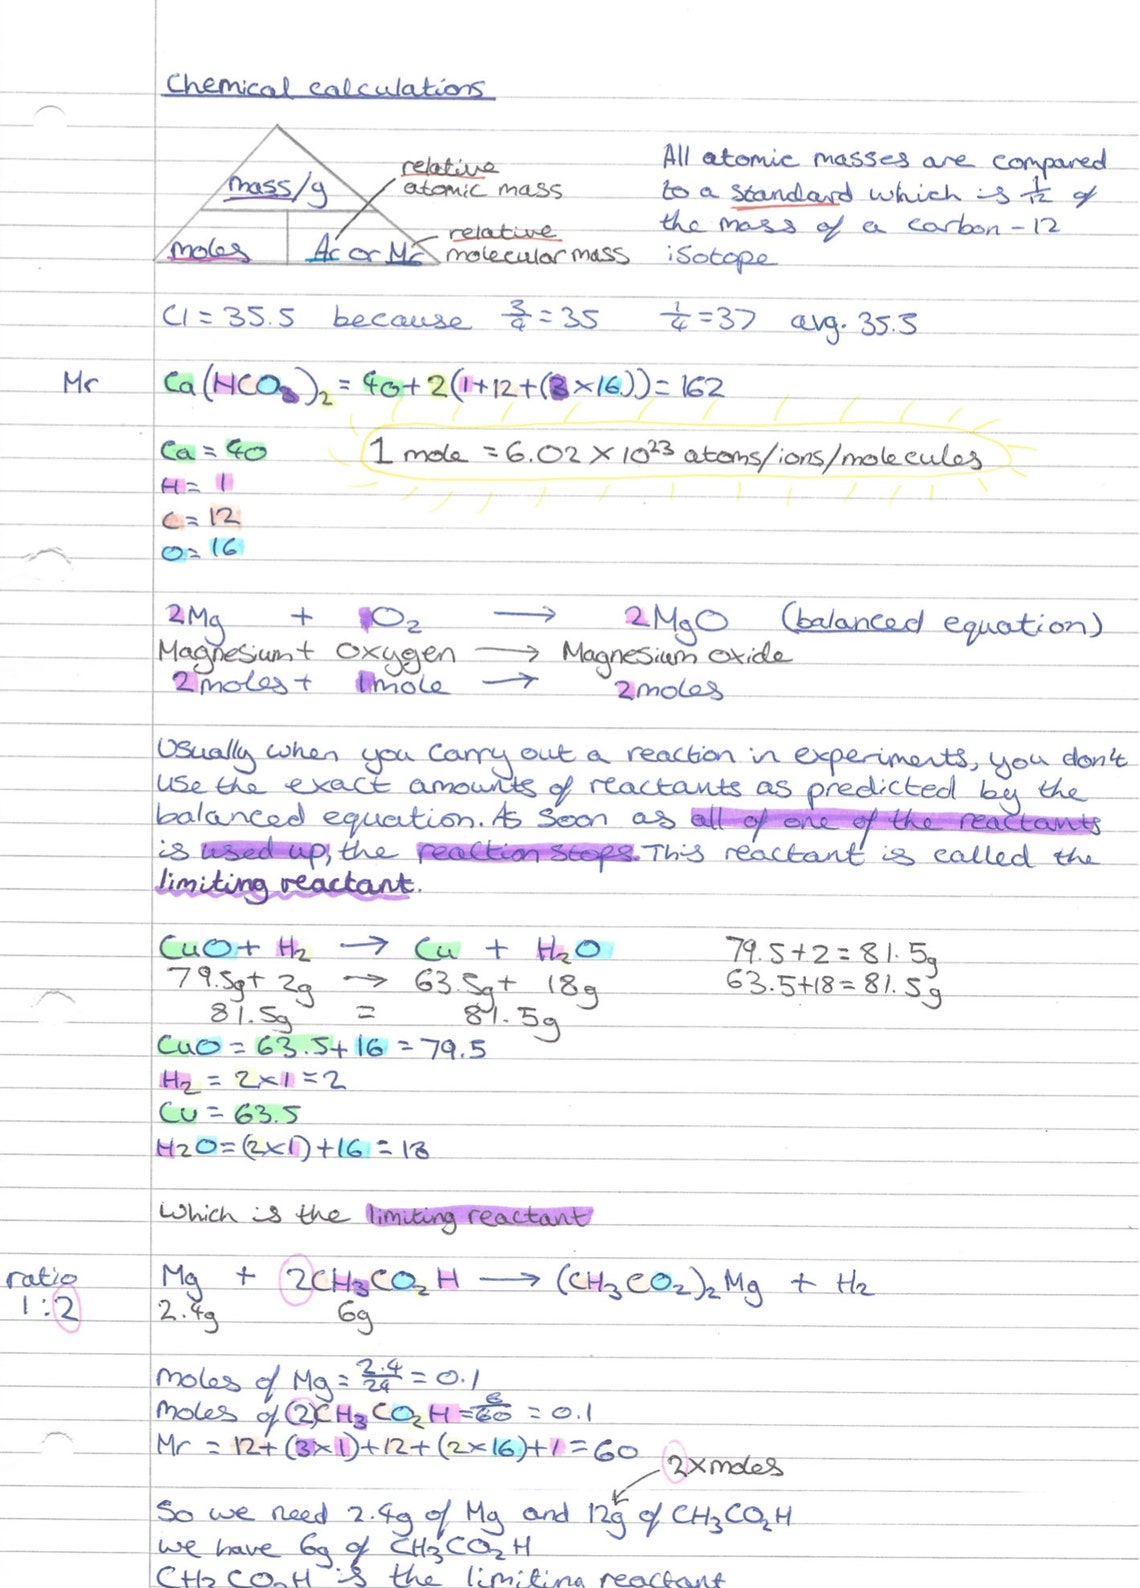 Chemical calculations
mass/g
moles
Ar or Mr
relative
atomic mass
relative
molecular mass
All atomic masses are compared
to a standard which is 1/12 of
the mass of a carbon-12
isotope
Cl = 35.5 because 3/4 = 35 1/4 = 37 avg. 35.5
Mr Ca(HCO₃)₂ = 40+2(1+12+(3×16))=162
Ca = 40
1 mole = 6.02 × 10²³ atoms/ions/molecules
H = 1
C = 12
O = 16
2Mg + 1O₂ → 2MgO (balanced equation)
Magnesium + oxygen → Magnesium oxide
2moles + 1mole → 2moles
Usually when you carry out a reaction in experiments, you don't
use the exact amounts of reactants as predicted by the
balanced equation. As soon as all of one of the reactants
is used up, the reaction stops. This reactant is called the
limiting reactant.
CuO + H₂ → Cu + H₂O 79.5+2=81.5g
79.5g + 2g → 63.5g + 18g 63.5+18=81.5g
81.5g = 81.5g
CuO = 63.5+16 = 79.5
H₂ = 2×1 = 2
Cu = 63.5
H2O=(2×1)+16 = 18
Which is the limiting reactant
ratio Mg + 2CH₃CO₂H → (CH₃CO₂)₂Mg + H₂
1:2 2.4g 6g
moles of Mg = 2.4/24 = 0.1
Moles of (2)CH₃CO₂H = 6/60 = 0.1
Mr = 12+(3×1)+12+(2×16)+1=60
2×moles
So we need 2.4g of Mg and 12g of CH₃CO₂H
we have 6g of CH₃CO₂H
CH₃CO₂H is the limiting reactant